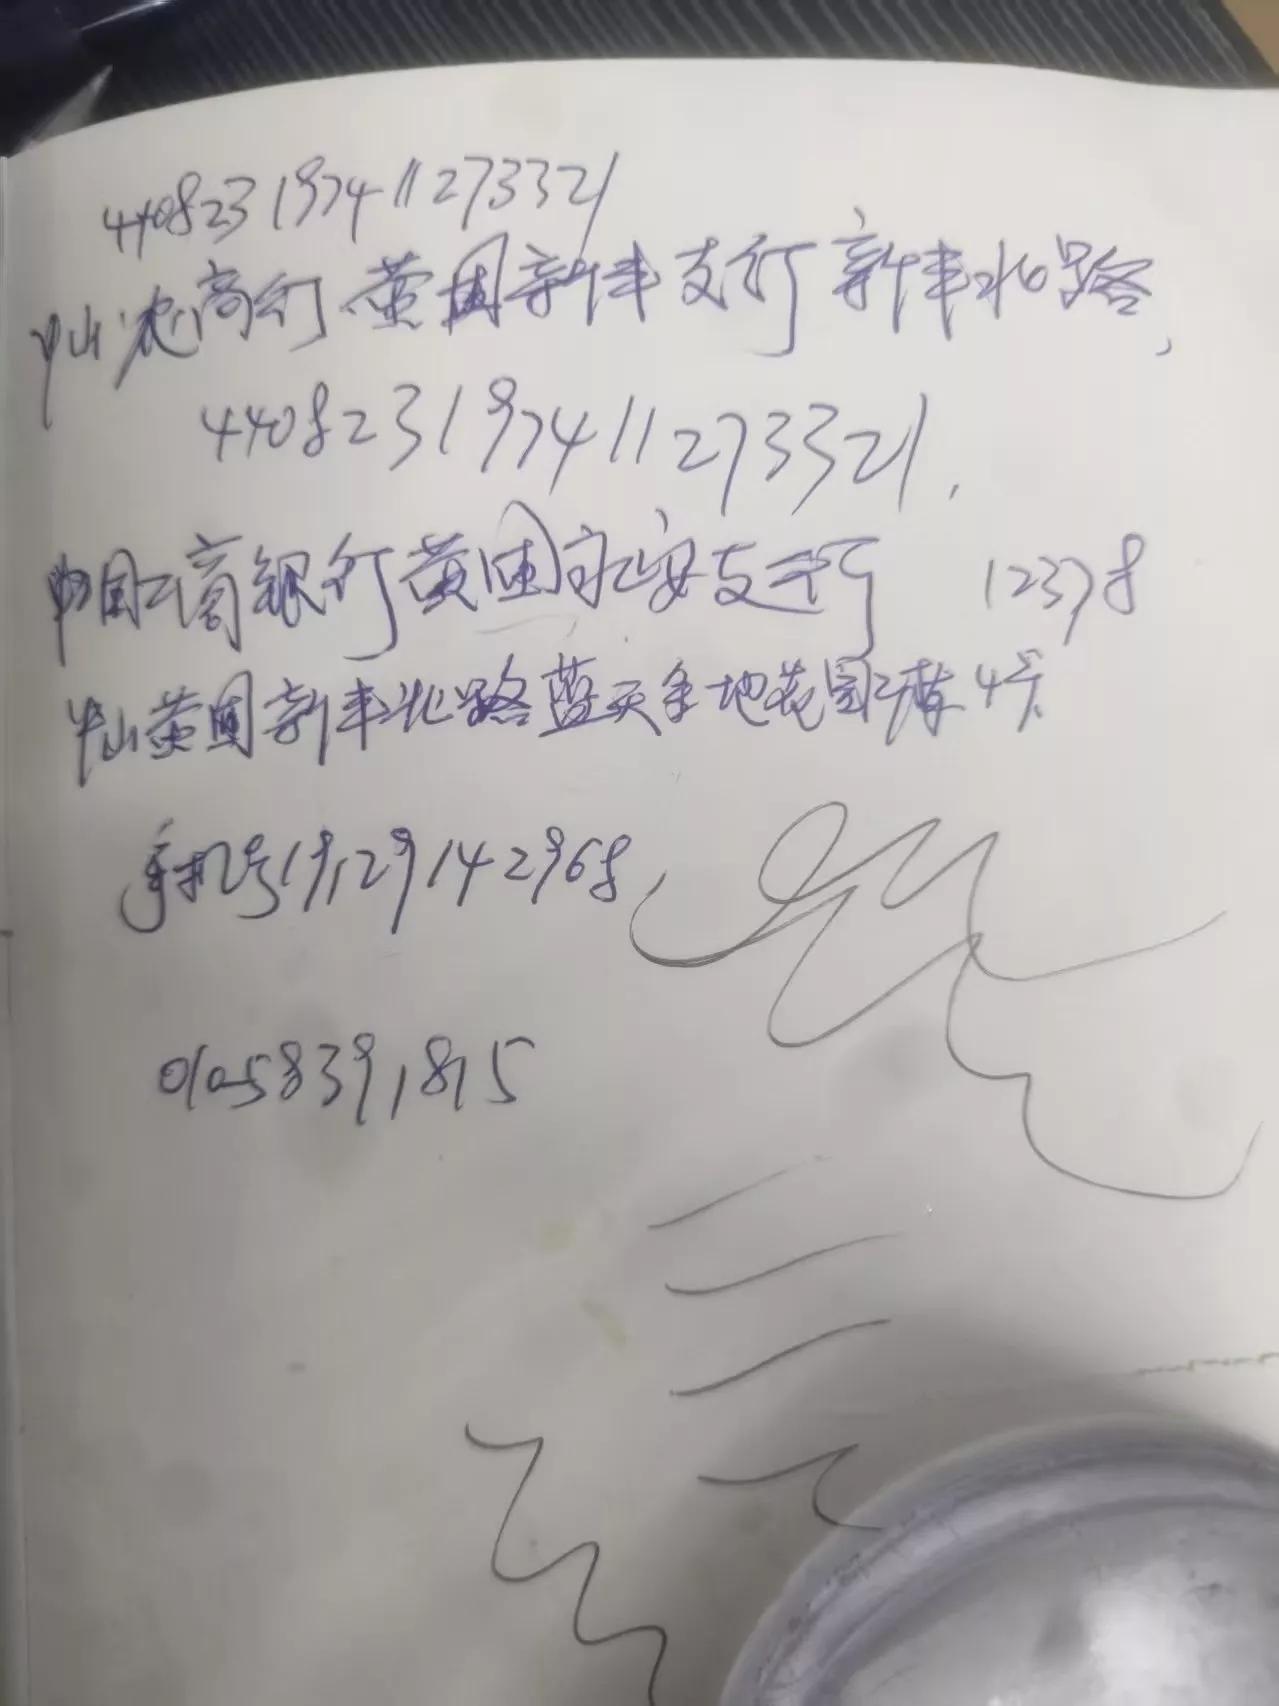 440823197411273321
中山农商行黄圃新丰支行新丰北路,
440823197411273321.
中国工商银行黄圃永安支行 12378
中山黄圃新丰北路蓝天金地花园2栋4卡
手机号19129142968,
01058391815